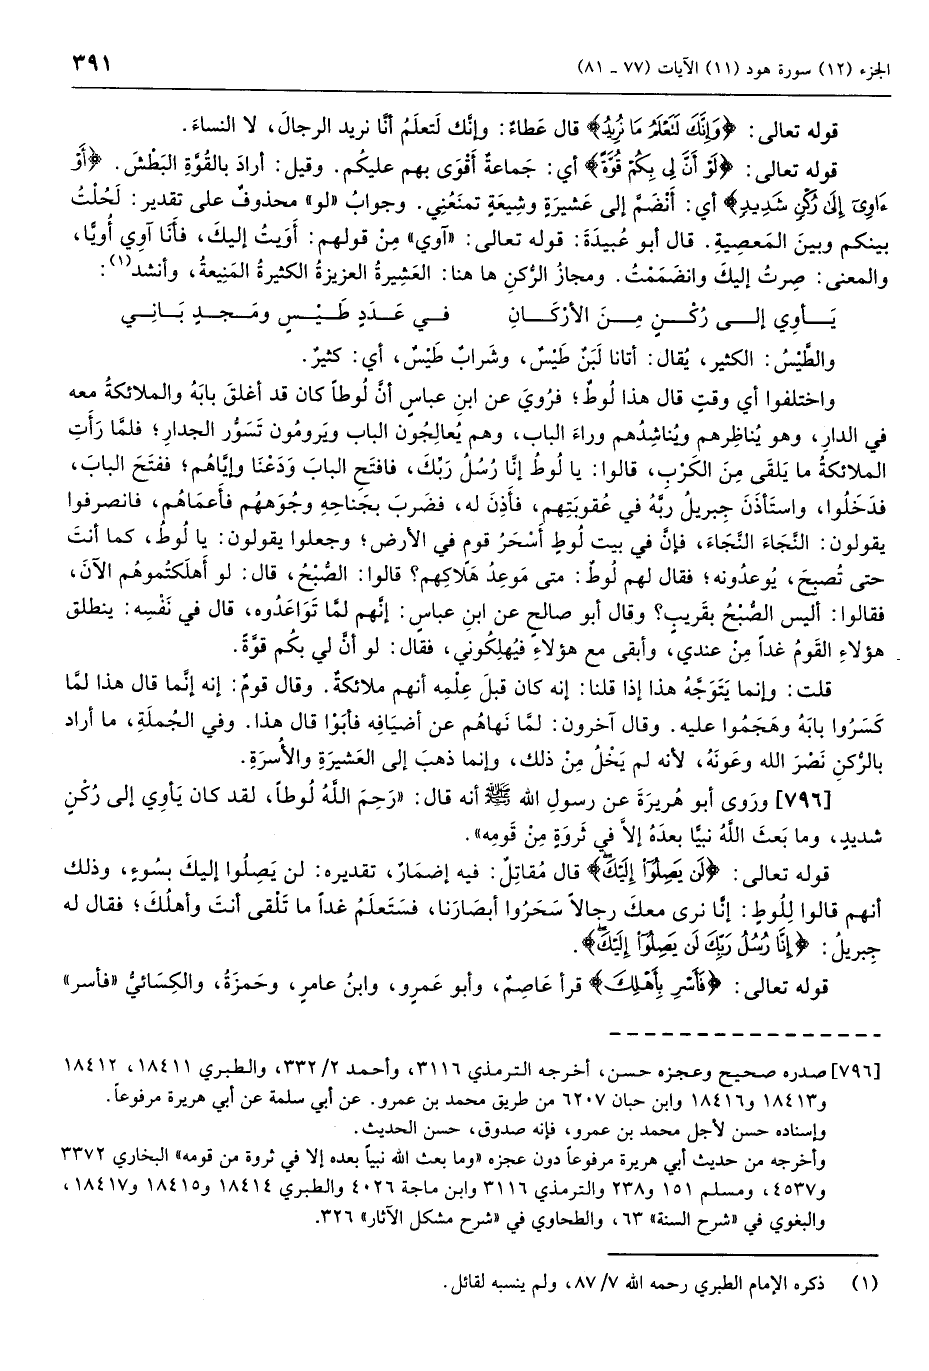 الجزء (١٢) سورة هود (١١) الآيات (٧٧ - ٨١)
٣٩١
قوله تعالى: ﴿وَإِنَّكَ لَتَعْلَمُ مَا نُرِيدُ﴾ قال عَطاءٌ: وإنَّك لَتعلَمُ أنَّا نريد الرجالَ، لا النساءَ.
قوله تعالى: ﴿لَوْ أَنَّ لِي بِكُمْ قُوَّةً﴾ أي: جَماعةٌ أَقْوَى بهم عليكم. وقيل: أرادَ بالقُوَّةِ البَطْشَ. ﴿أَوْ
ءَاوِىٓ إِلَىٰ رُكْنٍ شَدِيدٍ﴾ أي: أَنْضَمَّ إلى عَشيرَةٍ وشِيعَةٍ تمنَعُنِي. وجوابُ «لو» محذوفٌ على تقدير: لَحُلْتُ
بينكم وبينَ المَعصِيةِ. قال أبو عُبيدَةَ: قوله تعالى: «آوي» مِنْ قولهم: أوَيتُ إليكَ، فأنَا آوِي أُويًّا،
والمعنى: صِرتُ إليكَ وانضَمَمْتُ. ومجازُ الرُّكنِ ها هنا: العَشيرَةُ العزيزةُ الكثيرةُ المَنِيعةُ، وأنشد(١):
يَـأوِي إلـى رُكْـنٍ مِـنَ الأرْكَـانِ فـي عَـدَدٍ طَيْـسٍ ومَـجـدٍ بَـانِـي
والطَّيْسُ: الكثير، يُقال: أتانا لَبَنٌ طَيْسٌ، وشَرابٌ طَيْسٌ، أي: كثيرٌ.
واختلفوا أي وقتٍ قال هذا لُوطٌ؛ فرُويَ عن ابنِ عباسٍ أنَّ لُوطاً كان قد أغلقَ بابَهُ والملائكةُ معه
في الدارِ، وهو يُناظِرهم ويُناشِدُهم وراءَ البابِ، وهم يُعالِجُون البابَ ويَرومُون تَسَوُّرَ الجدارِ؛ فلمَّا رَأَتِ
الملائكةُ ما يَلقَى مِنَ الكَرْبِ، قالوا: يا لُوطُ إنَّا رُسُلُ رَبِّكَ، فافتَحِ البابَ وَدَعْنَا وإيَّاهُم؛ ففتَحَ البابَ،
فدَخَلُوا، واستَأذَنَ جِبريلُ ربَّهُ في عُقوبَتِهِم، فأَذِنَ له، فضَرَبَ بجَناحِهِ وجُوهَهُم فأَعمَاهُم، فانصرفوا
يقولون: النَّجَاءَ النَّجَاءَ، فإنَّ في بيت لُوطٍ أَسْحَرُ قومٍ في الأرضِ؛ وجعلوا يقولون: يا لُوطُ، كما أنتَ
حتى تُصبِحَ، يُوعدُونه؛ فقال لهم لُوطٌ: متى مَوعِدُ هَلاكِهم؟ قالوا: الصُّبْحُ، قال: لو أهلَكتُموهُم الآنَ،
فقالوا: أليس الصُّبْحُ بقَريبٍ؟ وقال أبو صالحٍ عن ابنِ عباس: إنَّهم لمَّا تَوَاعَدُوه، قال في نَفْسِه: ينطلق
هؤلاءِ القَومُ غداً مِنْ عندي، وأبقى مع هؤلاءِ فيُهلِكُوني، فقال: لو أنَّ لي بكُم قوَّةً.
قلت: وإنما يَتَوَجَّهُ هذا إذا قلنا: إنه كان قبلَ عِلْمِه أنهم ملائكةٌ. وقال قومٌ: إنه إنَّما قال هذا لمَّا
كَسَرُوا بابَهُ وهَجَمُوا عليه. وقال آخرون: لمَّا نَهاهُم عن أضيَافِه فأبَوْا قال هذا. وفي الجُملَةِ، ما أراد
بالرُّكنِ نَصْرَ الله وعَونَهُ، لأنه لم يَخْلُ مِنْ ذلك، وإنما ذهبَ إلى العَشيرَةِ والأُسرَةِ.
[٧٩٦] ورَوى أبو هُريرَةَ عن رسولِ الله ﷺ أنه قال: «رَحِمَ اللَّهُ لُوطاً، لقد كان يَأوِي إلى رُكْنٍ
شديدٍ، وما بَعثَ اللَّهُ نبيًّا بعدَهُ إلاَّ في ثَروَةٍ مِنْ قَومِه».
قوله تعالى: ﴿لَن يَصِلُوٓا۟ إِلَيْكَ﴾ قال مُقاتِلٌ: فيه إضمَارٌ، تقديره: لن يَصِلُوا إليكَ بسُوءٍ، وذلك
أنهم قالوا لِلُوطٍ: إنَّا نرى معكَ رجالاً سَحَرُوا أبصَارَنا، فسَتَعلَمُ غداً ما تَلْقى أنتَ وأهلُكَ؛ فقال له
جِبريلُ: ﴿إِنَّا رُسُلُ رَبِّكَ لَن يَصِلُوٓا۟ إِلَيْكَ﴾.
قوله تعالى: ﴿فَأَسْرِ بِأَهْلِكَ﴾ قرأ عَاصِمٌ، وأبو عَمرٍو، وابنُ عامرٍ، وحَمزَةُ، والكِسَائيُّ «فأسر»
[٧٩٦] صدره صحيح وعجزه حسن، أخرجه الترمذي ٣١١٦، وأحمد ٢/ ٣٣٢، والطبري ١٨٤١١، ١٨٤١٢
و١٨٤١٣ و١٨٤١٦ وابن حبان ٦٢٠٧ من طريق محمد بن عمرو. عن أبي سلمة عن أبي هريرة مرفوعاً.
وإسناده حسن لأجل محمد بن عمرو، فإنه صدوق، حسن الحديث.
وأخرجه من حديث أبي هريرة مرفوعاً دون عجزه «وما بعث الله نبياً بعده إلا في ثروة من قومه» البخاري ٣٣٧٢
و٤٥٣٧، ومسلم ١٥١ و٢٣٨ والترمذي ٣١١٦ وابن ماجة ٤٠٢٦ والطبري ١٨٤١٤ و١٨٤١٥ و١٨٤١٧،
والبغوي في «شرح السنة» ٦٣، والطحاوي في «شرح مشكل الآثار» ٣٢٦.
(١) ذكره الإمام الطبري رحمه الله ٧/ ٨٧، ولم ينسبه لقائل.